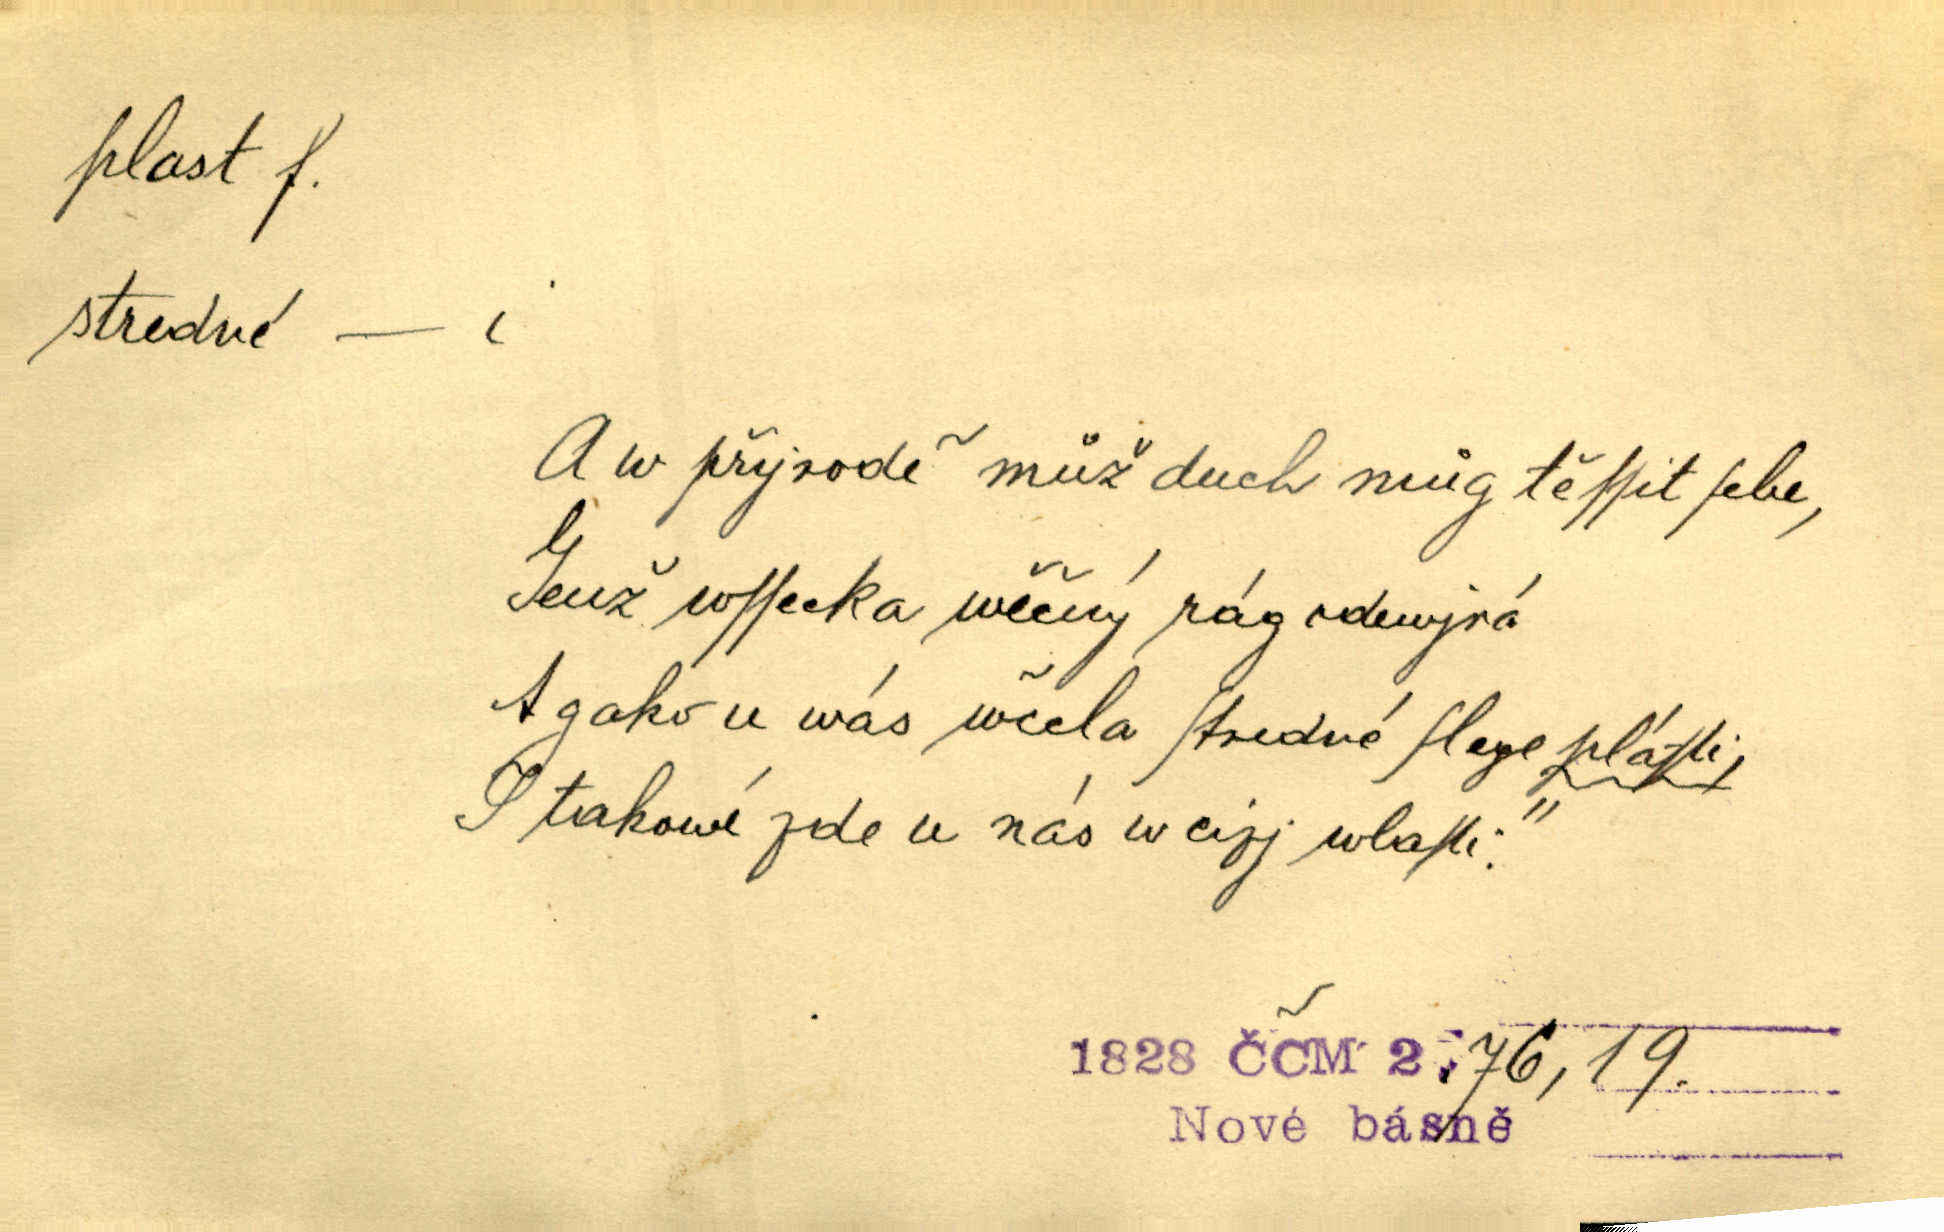 plast f.
stredné — i
A w přjrodě můž duch můg těſſit ſebe,
Genž wſſecka wěčný rág odewjrá
A gako u wás wčela ſtredné ſlege pláſti,
I takowé zde u nás w cizj wlaſti."
1828 ČČM 2, 76, 19.
Nové básně